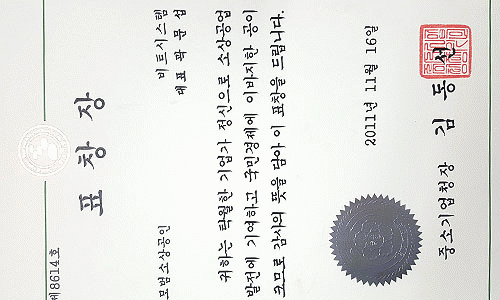 제8614호
표창장
모범소상공인
비트시스템
대표 곽문섭
귀하는 탁월한 기업가 정신으로 소상공업
발전에 기여하고 국민경제에 이바지한 공이
크므로 감사의 뜻을 담아 이 표창을 드립니다.
2011년 11월 16일
중소기업청장 김동선